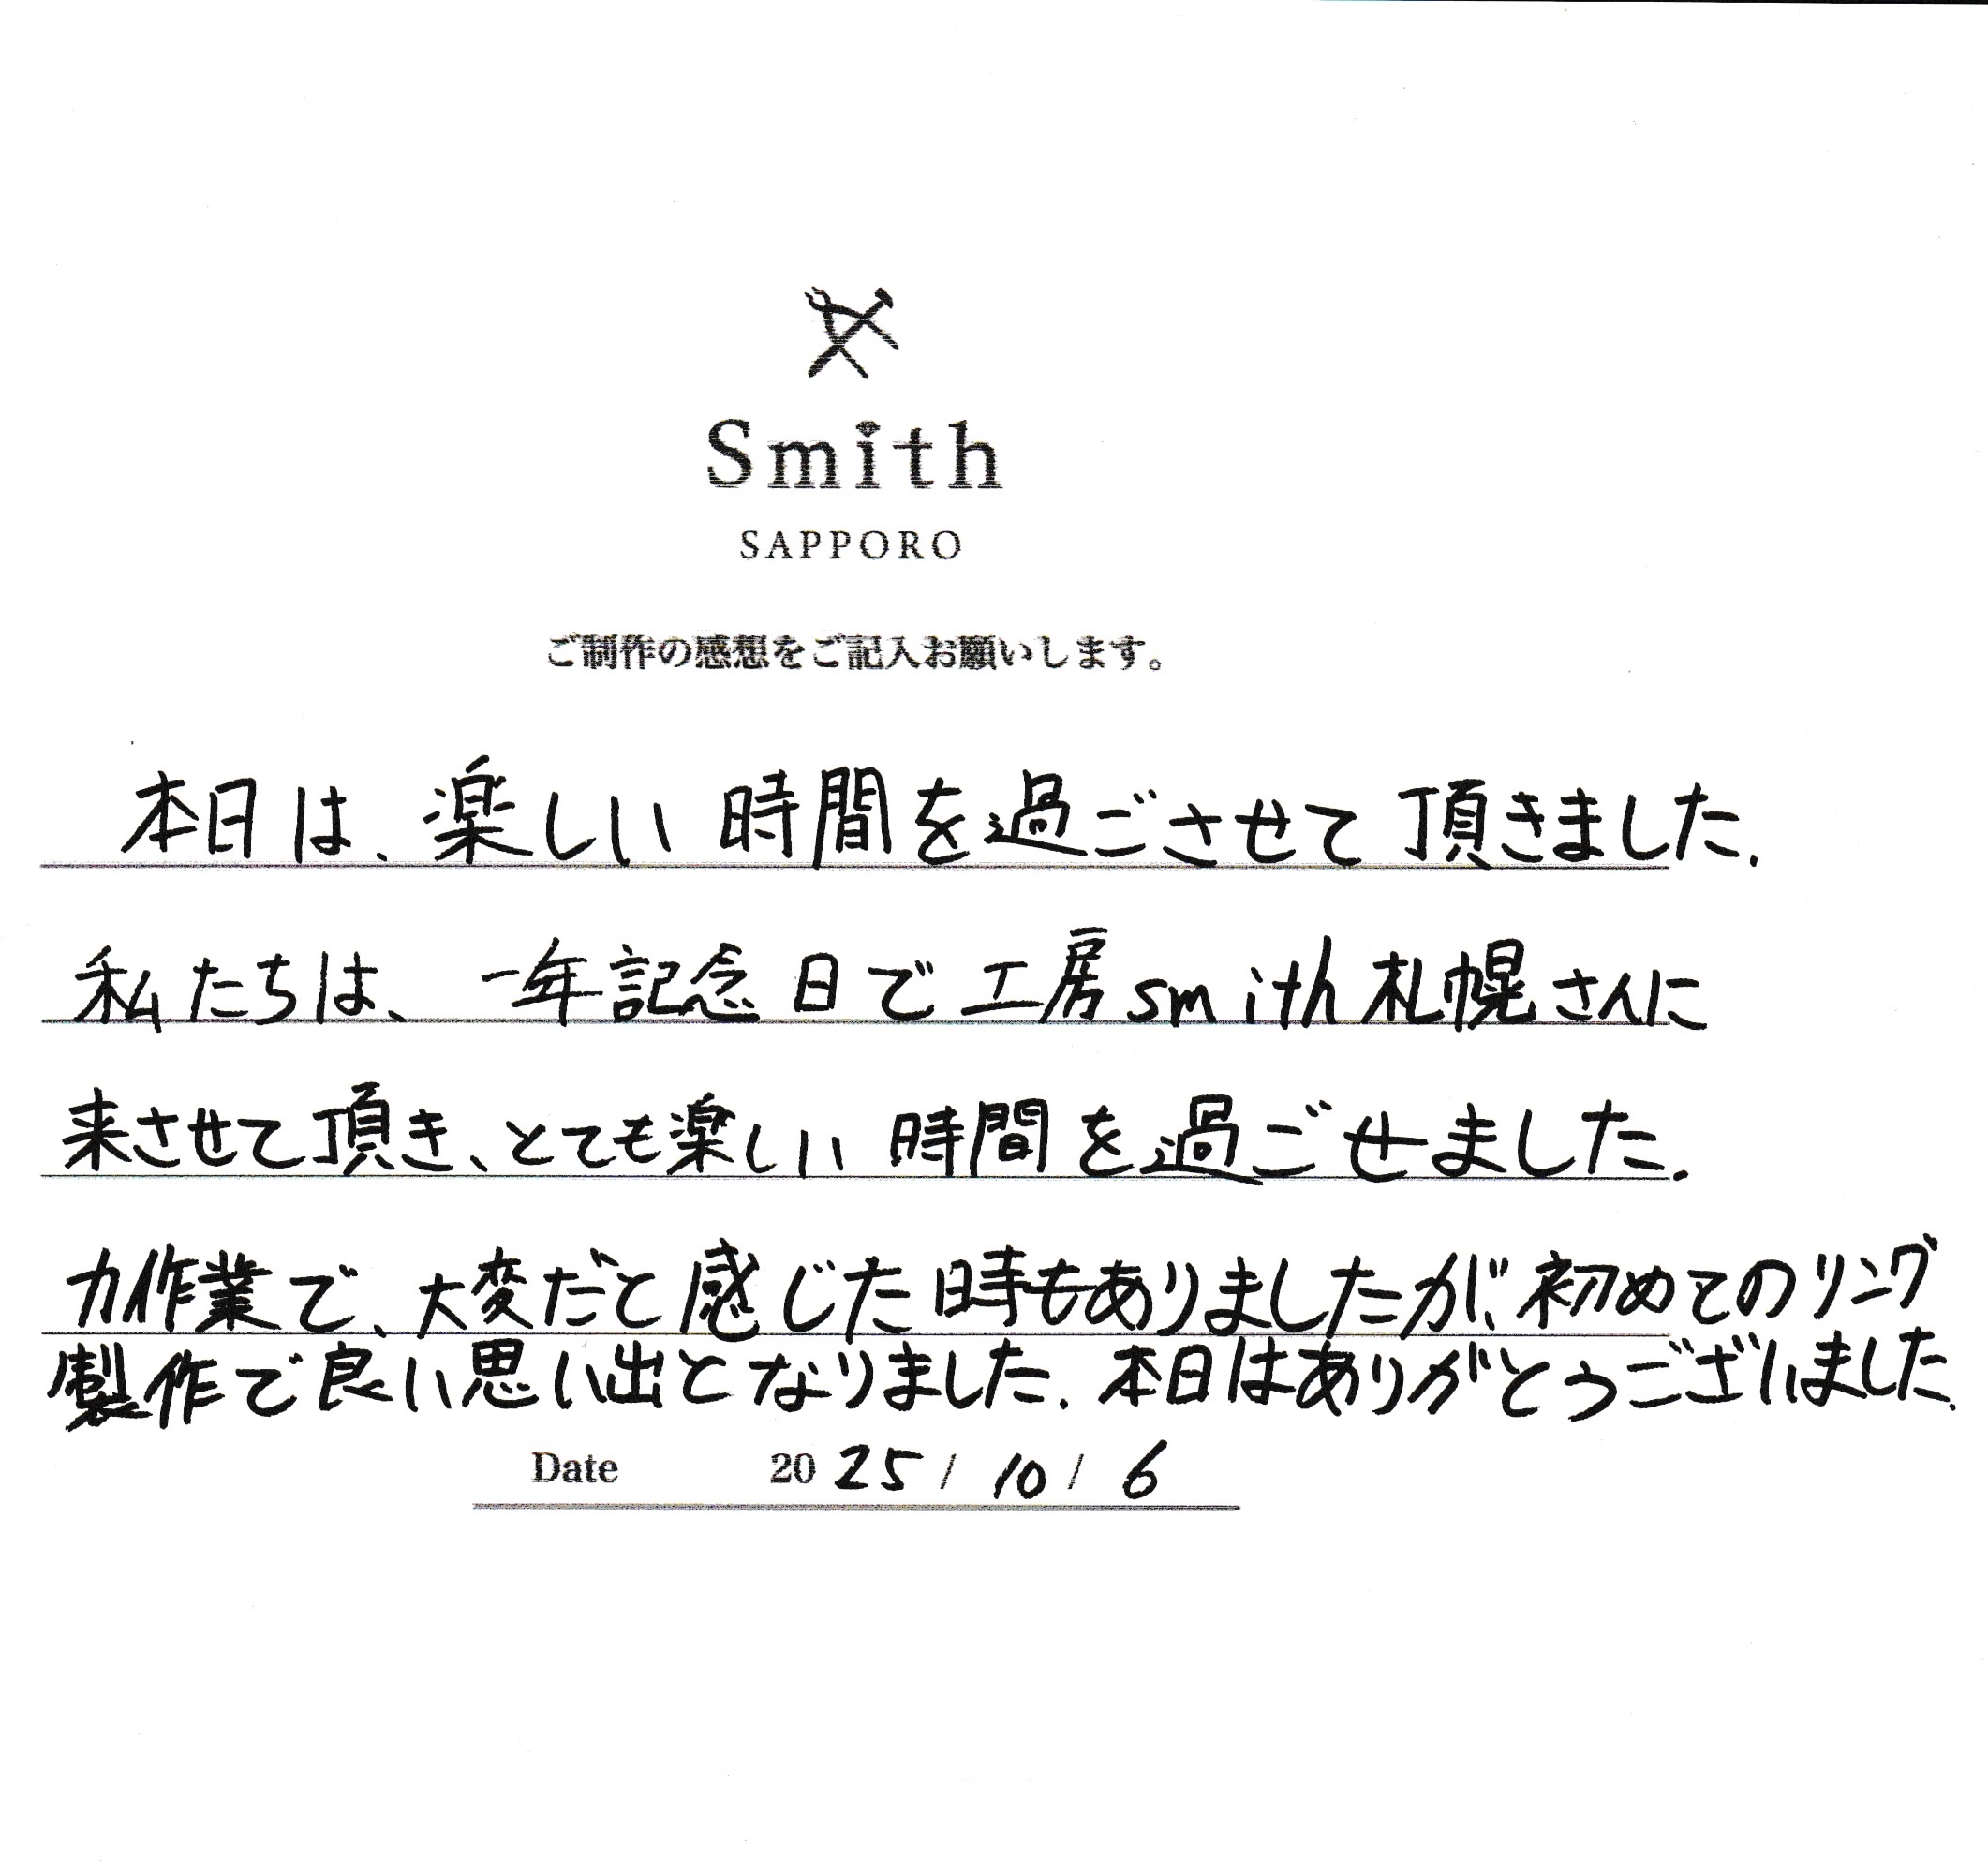 Smith
SAPPORO
ご制作の感想をご記入お願いします。
本日は、楽しい時間を過ごさせて頂きました.
私たちは、一年記念日で工房smith札幌さんに
来させて頂き、とても楽しい時間を過ごせました.
力作業で、大変だと感じた時もありましたが、初めてのリング
製作で良い思い出となりました.本日はありがとうございました.
Date 2025/10/6